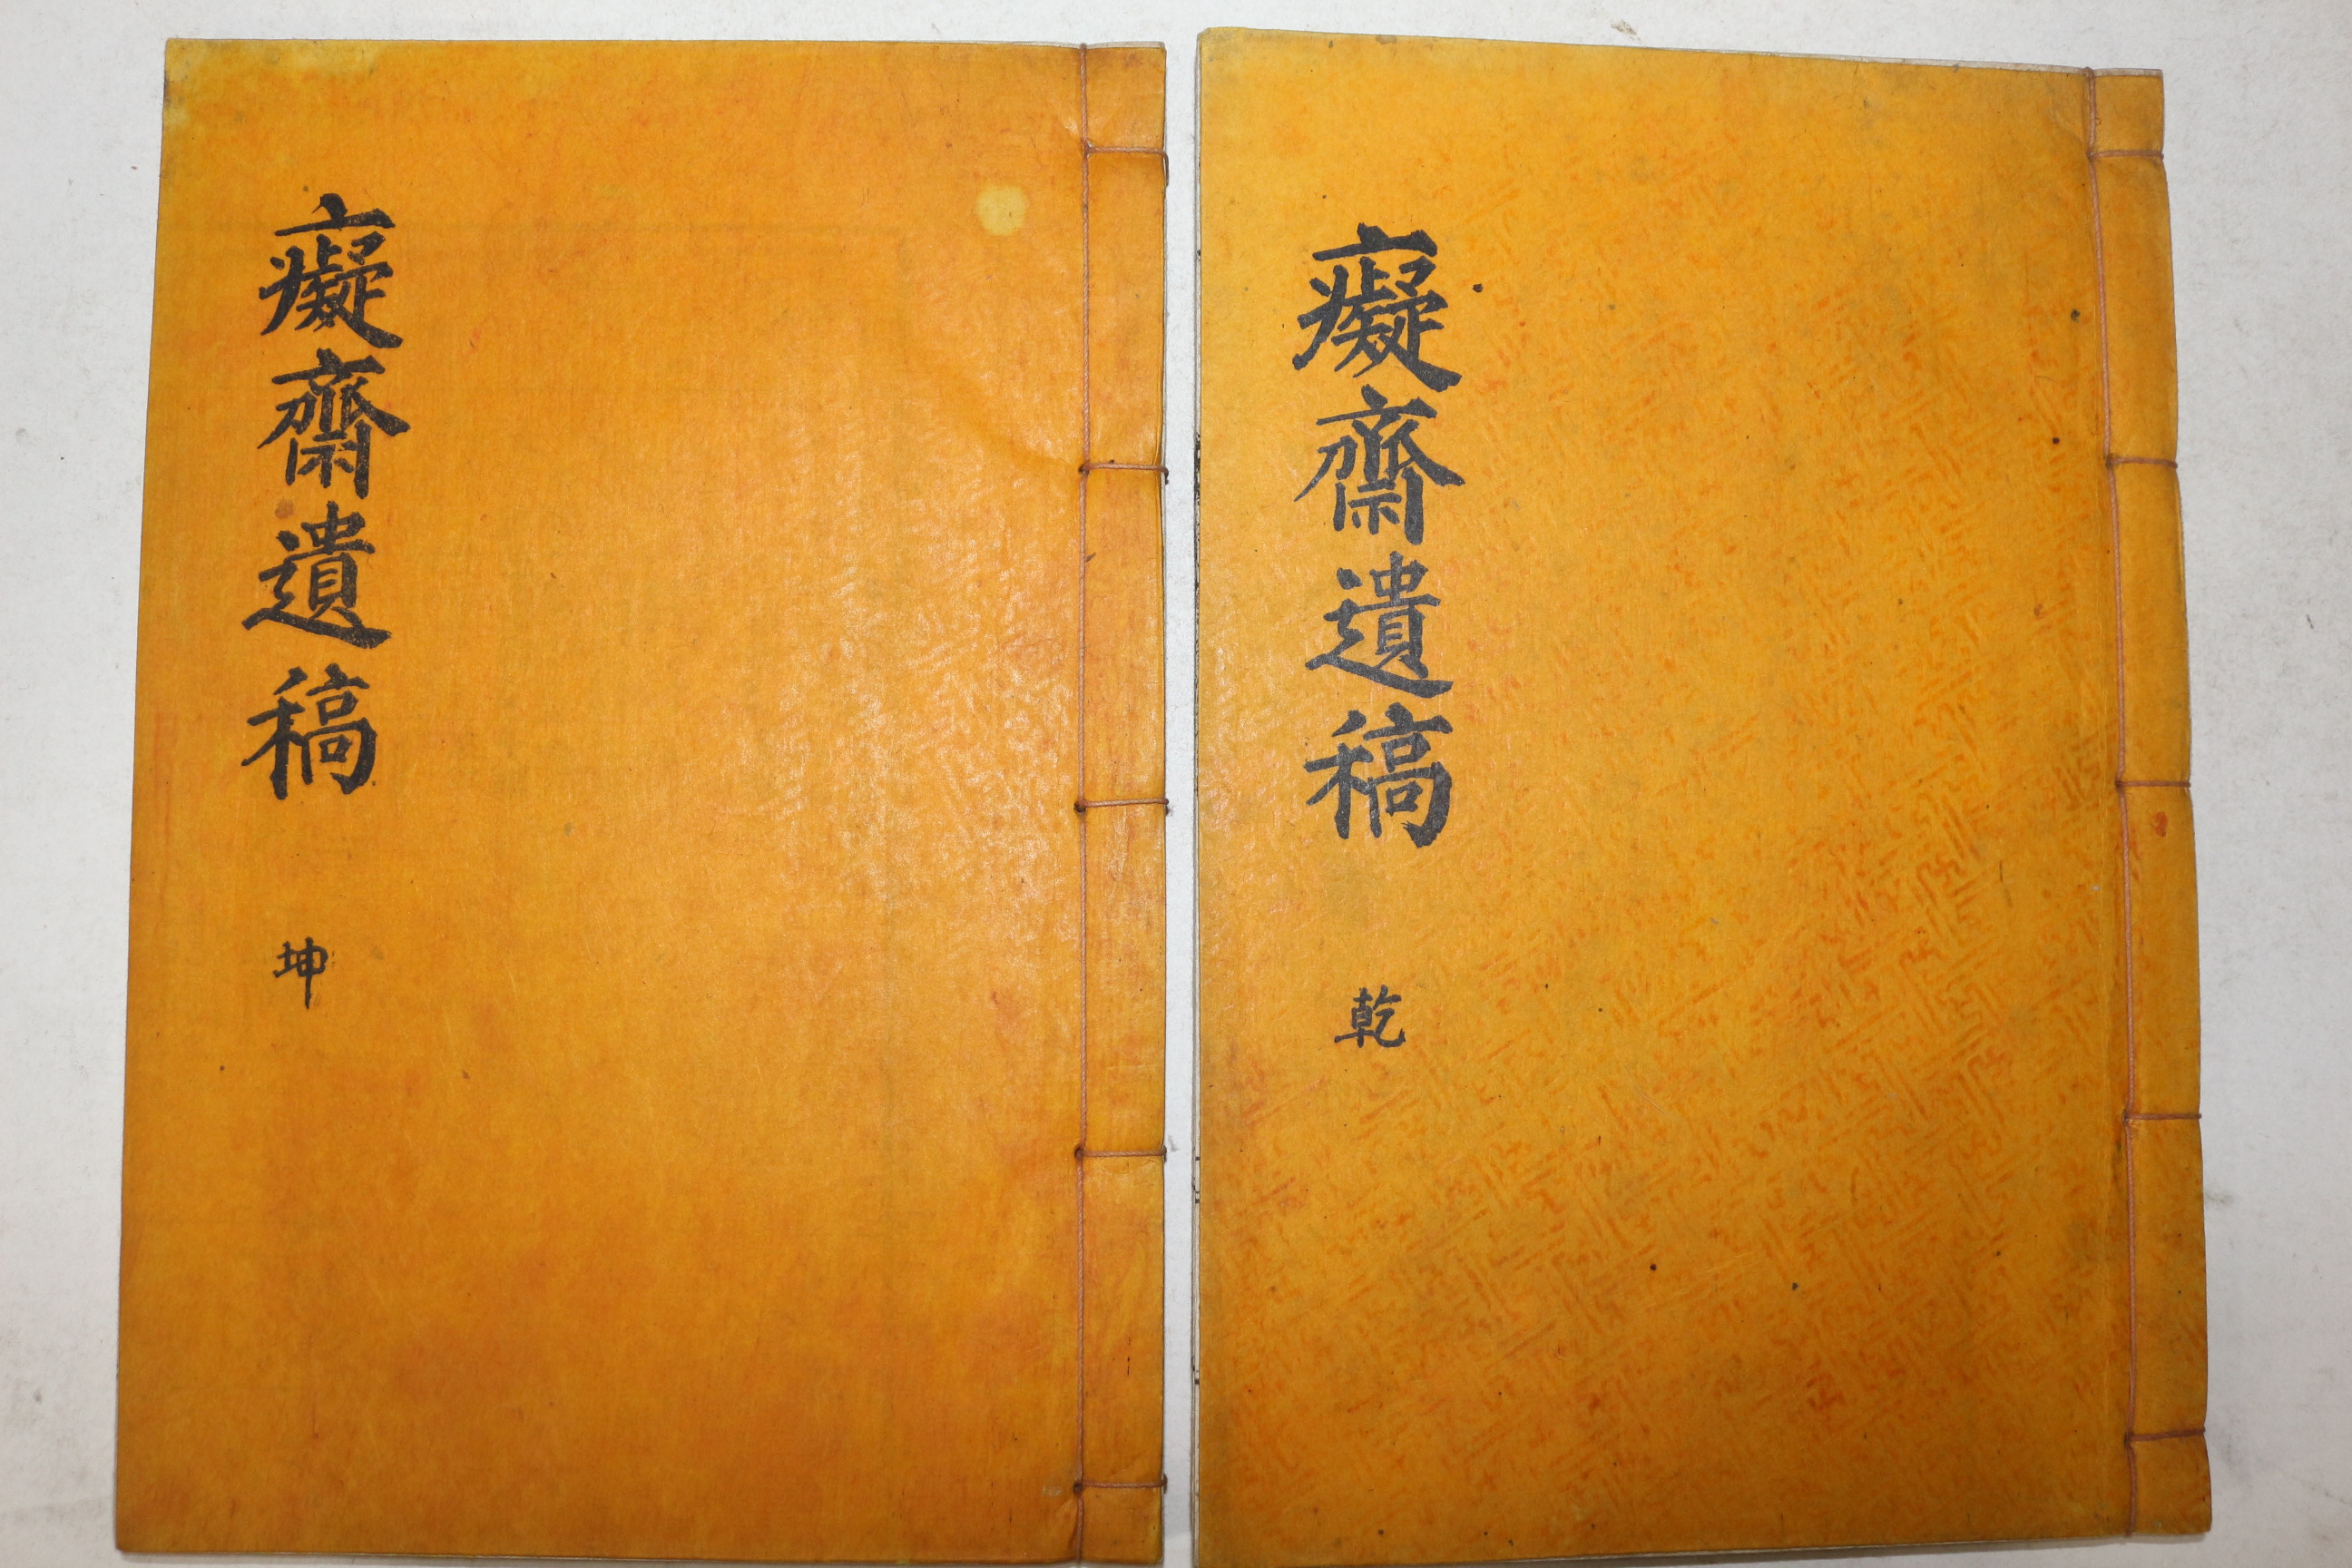 癡齋遺稿 乾
癡齋遺稿 坤